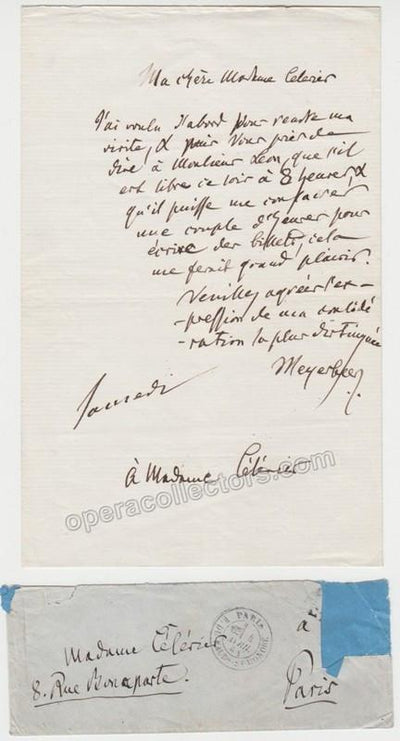 Ma chère Madame Célérier
J'ai voulu d'abord vous rendre ma
visite, & puis vous prier de
dire à Monsieur Léon, que s'il
est libre ce soir à 8 heures, &
qu'il puisse me consacrer
une couple d'heures pour
écrire des billets, cela
me ferait grand plaisir.
Veuillez agréer l'ex-
-pression de ma considé
-ration la plus distinguée
Meyerbeer
Samedi
à Madame Célérier
operacollectors.com
PARIS
Madame Célérier
à
8. Rue Bonaparte.
Paris